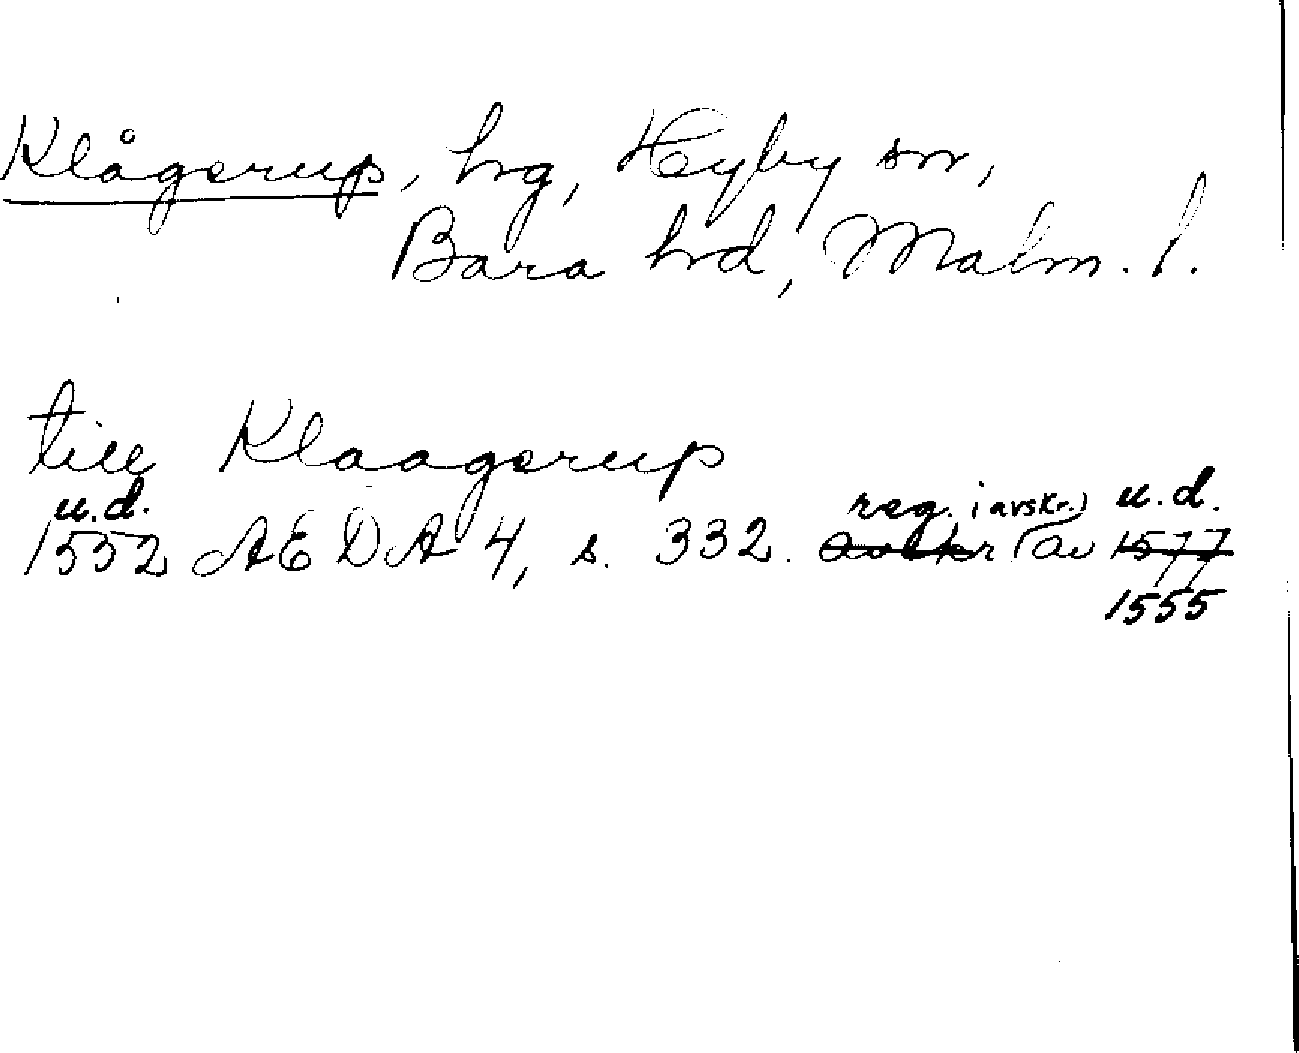 Klågerup, hrg, Hyby sn,
Bara hrd, Malm. l.
till Klaagerup
u.d. reg. (i avskr.) u.d.
1552 AEDA 4, s. 332. avskr av 1577
1555